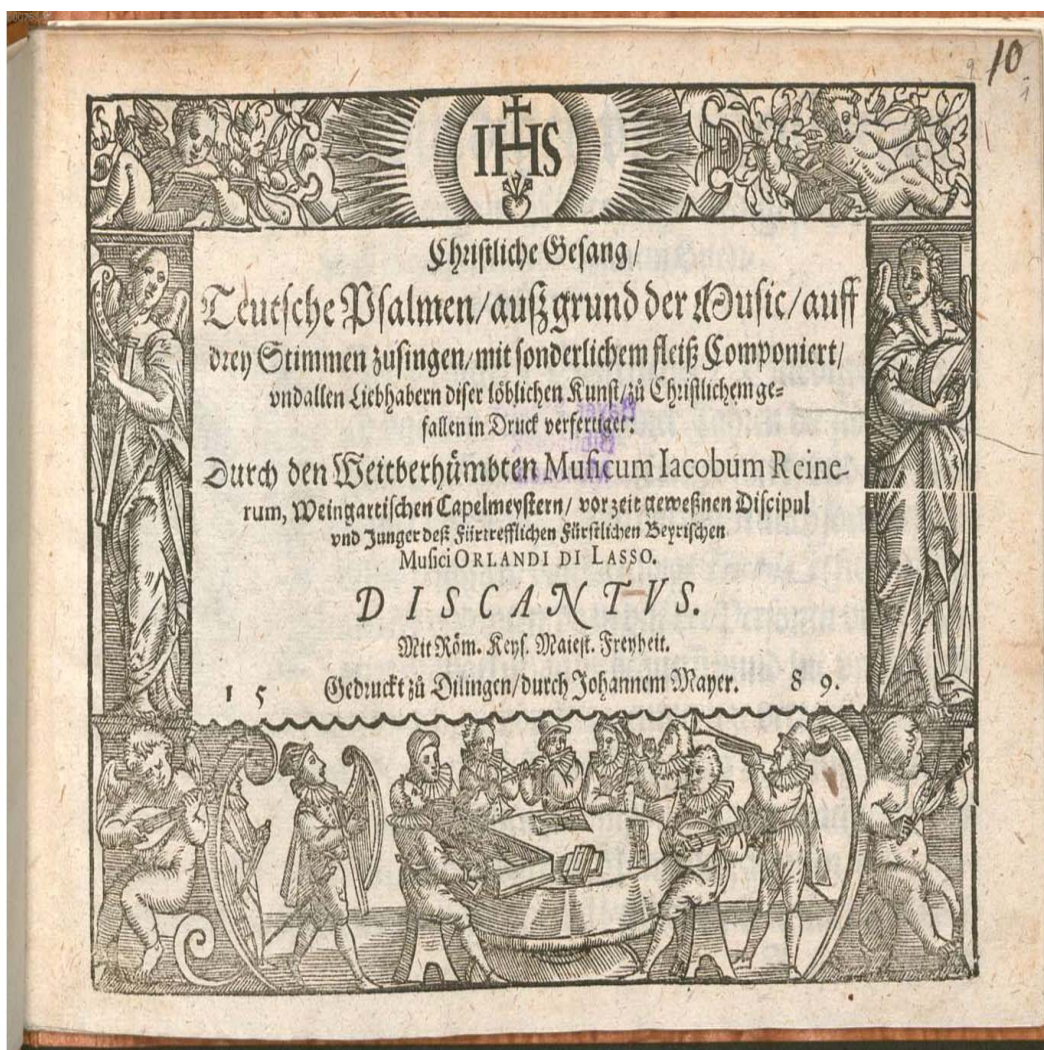 10
IHS
Christliche Gesang/
Teutsche Psalmen/außgrund der Music/auff
drey Stimmen zusingen/mit sonderlichem fleiß Componiert/
vnd allen Liebhabern diser löblichen Kunst/zů Christlichem ge-
fallen in Druck verfertiget:
Durch den Weitberhümbten Musicum Iacobum Reine-
rum, Weingartischen Capelmeystern/ vor zeit geweßnen Discipul
vnd Junger deß Fürtrefflichen Fürstlichen Beyrischen
Musici ORLANDI DI LASSO.
DISCANTVS.
Mit Röm. Keys. Maiest. Freyheit.
15 Gedruckt zů Dilingen/durch Johannem Mayer. 89.